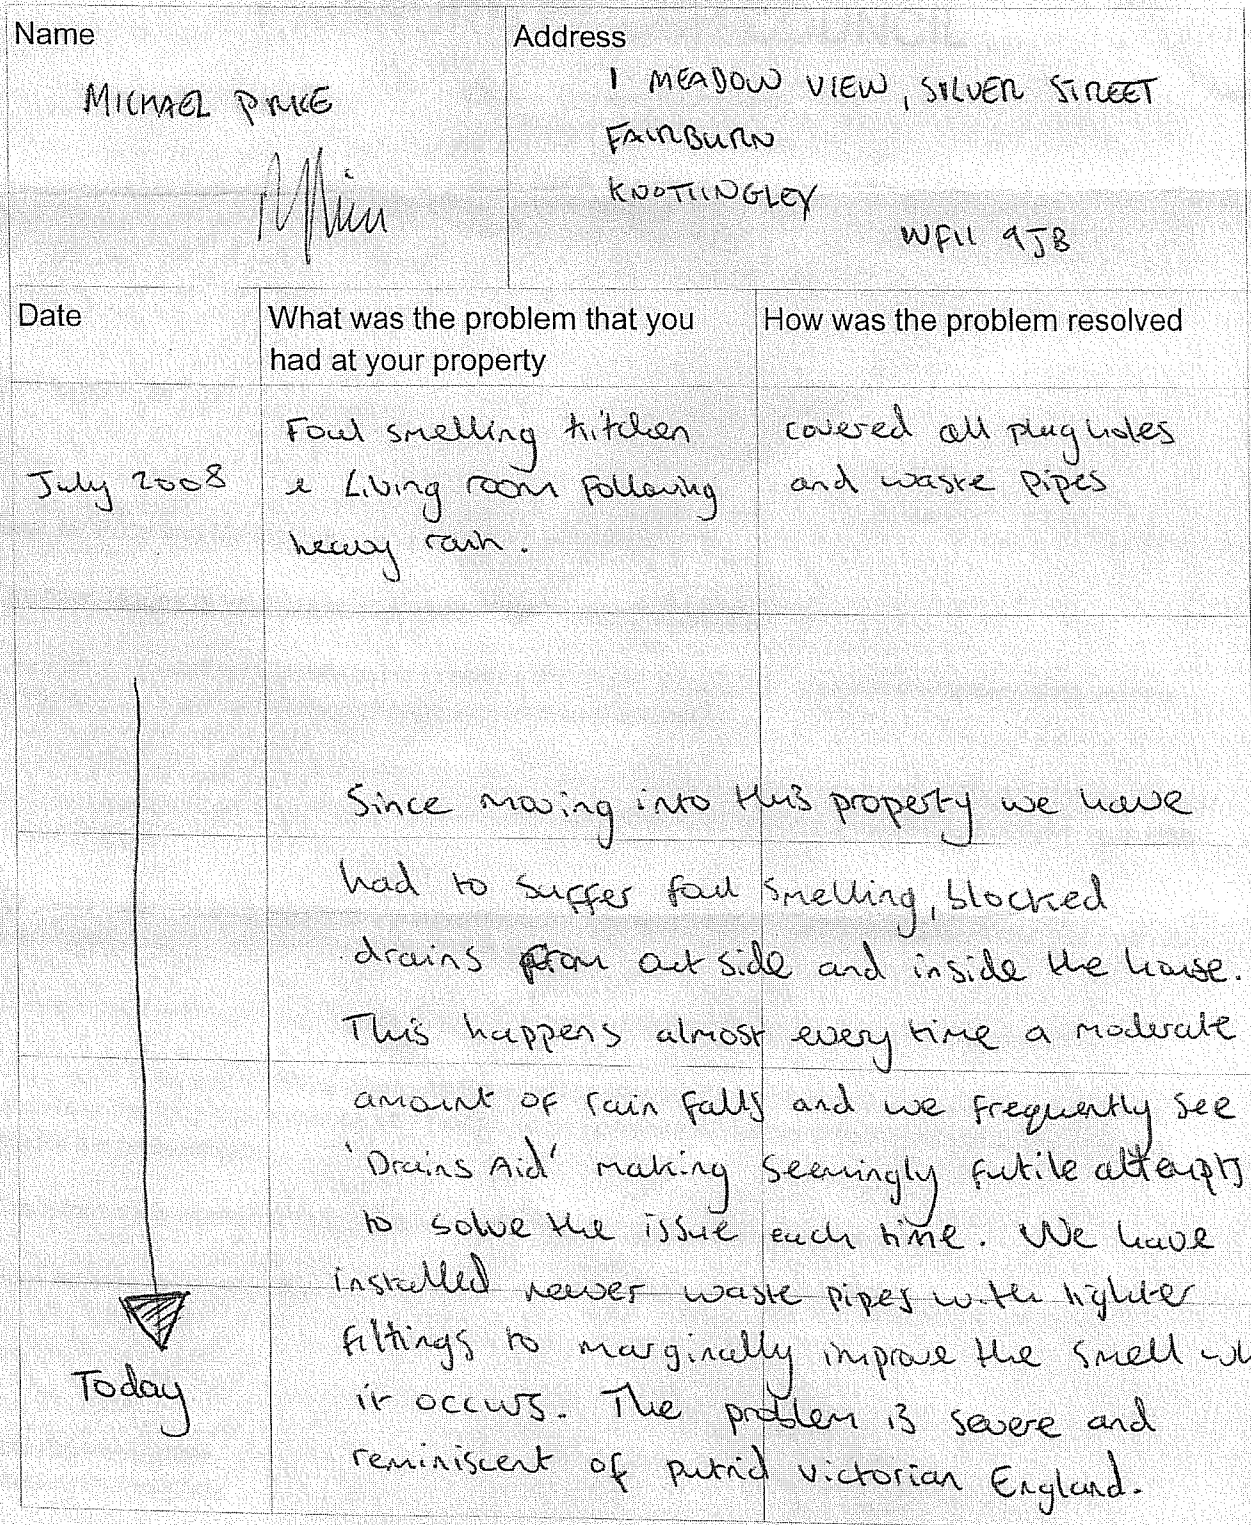 Name
MICHAEL PIRKE
Address
1 MEADOW VIEW, SILVER STREET
FAIRBURN
KNOTTINGLEY
WF11 9JB
Date
What was the problem that you
had at your property
How was the problem resolved
July 2008
Foul smelling kitchen
& Living room following
heavy rain.
covered all plug holes
and waste pipes
Since moving into this property we have
had to suffer foul smelling, blocked
drains from outside and inside the house.
This happens almost every time a moderate
amount of rain falls and we frequently see
'Drains Aid' making seemingly futile attempts
to solve the issue each time. We have
installed newer waste pipes with tighter
fittings to marginally improve the smell wh
it occurs. The problem is severe and
reminiscent of putrid victorian England.
Today